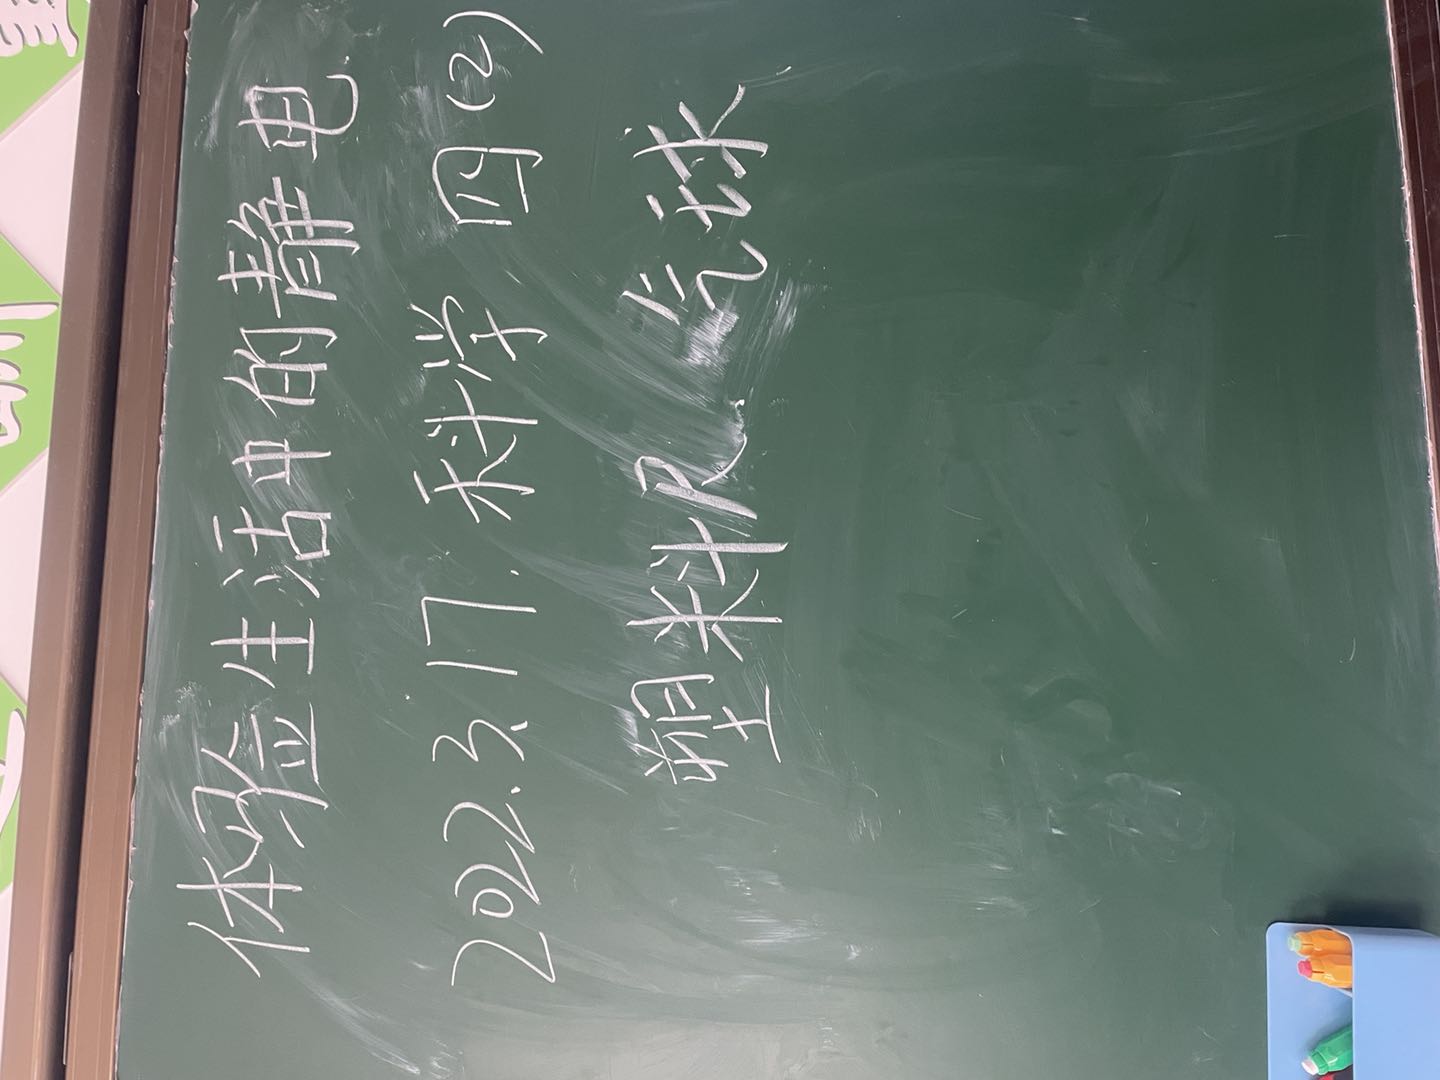 体验生活中的静电
2022.3.17. 科学 四(2)
塑料尺 气球